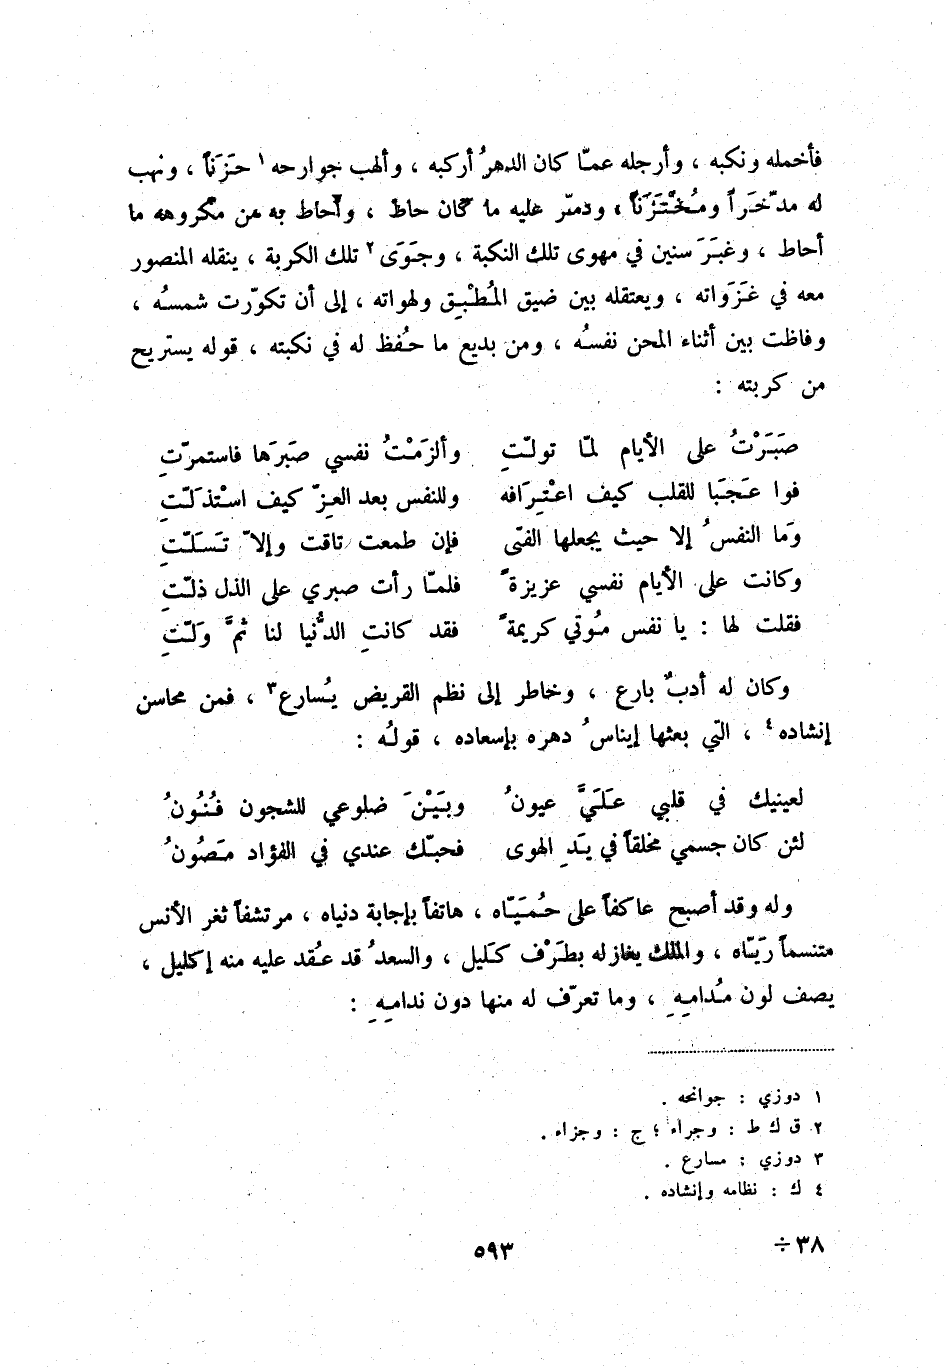 فأخمله ونكبه ، وأرجله عمّا كان الدهرُ أركبه ، وألهب جوارحه ١ حَزَناً ، ونهب
له مدّخَراً ومُخْتَزَناً ، ودمّر عليه ما كان حاط ، وأحاط به من مكروهه ما
أحاط ، وغبَرَ سنين في مهوى تلك النكبة ، وجَوَى ٢ تلك الكربة ، ينقله المنصور
معه في غَزَواته ، ويعتقله بين ضيق المُطْبِق ولهواته ، إلى أن تكوّرت شمسُه ،
وفاظت بين أثناء المحن نفسُه ، ومن بديع ما حُفظ له في نكبته ، قوله يستريح
من كربته :
صَبَرْتُ على الأيام لمّا تولّتِ وألزَمْتُ نفسي صَبرَها فاستمرّتِ
فوا عَجَبَا للقلب كيف اعْتِرَافه وللنفس بعد العزّ كيف اسْتذَلّتِ
وَما النفسُ إلا حيث يجعلها الفتى فإن طمعت تاقت وإلاّ تَسَلّتِ
وكانت على الأيام نفسي عزيزةً فلمّا رأت صبري على الذل ذلّتِ
فقلت لها : يا نفس مُوتي كريمةً فقد كانتِ الدُّنيا لنا ثمَّ وَلّتِ
وكان له أدبٌ بارع ، وخاطر إلى نظم القريض يُسارع ٣ ، فمن محاسن
إنشاده ٤ ، التي بعثها إيناسُ دهره بإسعاده ، قولُه :
لعينيك في قلبي عَلَيَّ عيونُ وبَيْنَ ضلوعي للشجون فُنُونُ
لئن كان جسمي مخلقاً في يَدِ الهوى فحبّك عندي في الفؤاد مَصُونُ
وله وقد أصبح عاكفاً على حُمَيّاه ، هاتفاً بإجابة دنياه ، مرتشفاً ثغر الأنس
متنسماً رَيّاه ، والملك يغازله بطَرْف كَليل ، والسعدُ قد عُقد عليه منه إكليل ،
يصف لون مُدامِهِ ، وما تعرّف له منها دون ندامِهِ :
١ دوزي : جوانحه .
٢ ق ك ط : وجراء ؛ ج : وجزاء .
٣ دوزي : مسارع .
٤ ك : نظامه وإنشاده .
٣٨ ÷
٥٩٣